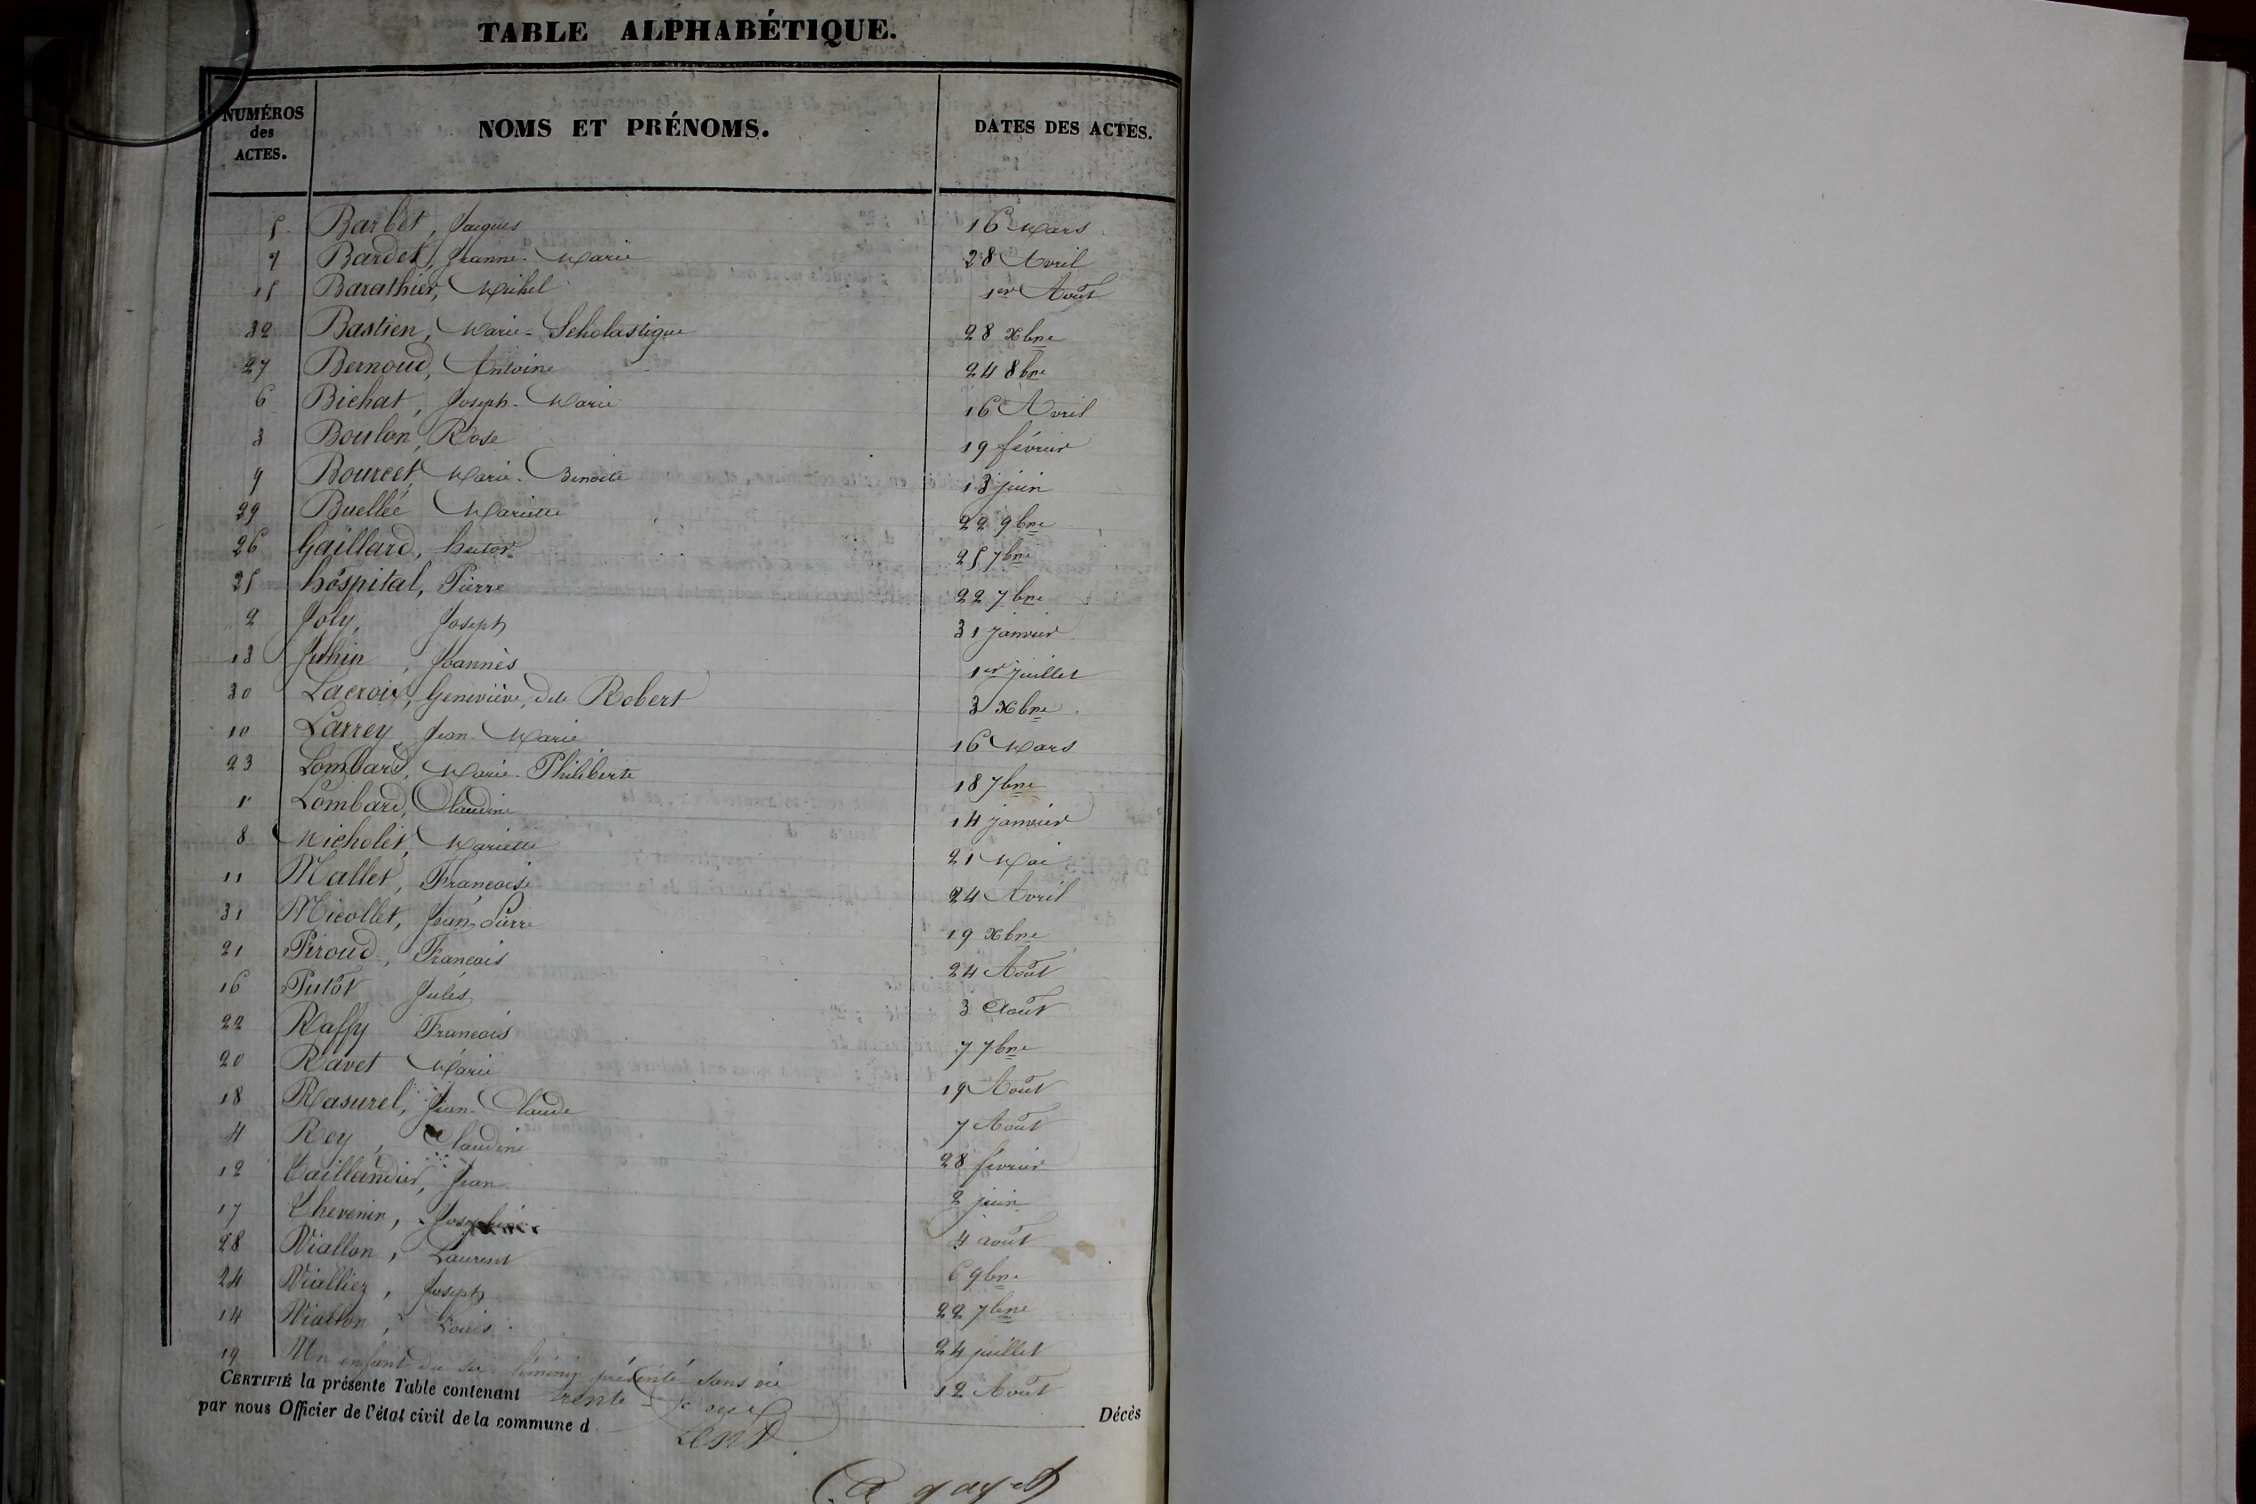 TABLE ALPHABÉTIQUE.
NUMÉROS des ACTES. NOMS ET PRÉNOMS. DATES DES ACTES.
5 Barbet, Jacques 16 Mars
7 Bardet, Jeanne-Marie 28 Avril
15 Barathier, Michel 1er Août
32 Bastien, Marie-Scholastique 28 Xbre
27 Bernoud, Antoine 24 8bre
6 Bichat, Joseph-Marie 16 Avril
3 Boulon, Rose 19 février
9 Bourcet, Marie-Benoite 13 juin
29 Buellée Mariette 22 9bre
26 Gaillard, hector 25 7bre
25 hospital, Pierre 22 7bre
2 Joly, Joseph 31 janvier
13 Juhin, Joannès 1er juillet
30 Lacroix, Geneviève, dite Robert 3 Xbre
10 Larrey, Jean-Marie 16 Mars
23 Lombard, Marie-Philiberte 18 7bre
1er Lombard, Claudine 14 janvier
8 Micholet, Mariette 21 Mai
11 Mallet, Francoise 24 Avril
31 Micollet, Jean-Pierre 19 Xbre
21 Piroud, Francois 24 Août
16 Putôt Jules 3 Août
22 Raffy Francois 7 7bre
20 Ravet Marie 19 Août
18 Rasurel, Jean-Claude 7 Août
4 Rey, Claudine 28 février
12 Taillandier, Jean 2 juin
17 Thevenin, 4 août
28 Viallon, Laurent 6 9bre
24 Viallier, Joseph 22 7bre
14 Viallon, Louis 24 juillet
19 Un enfant du sr présenté sans vie 12 Août
CERTIFIÉ la présente Table contenant trente Décès
par nous Officier de l'état civil de la commune d